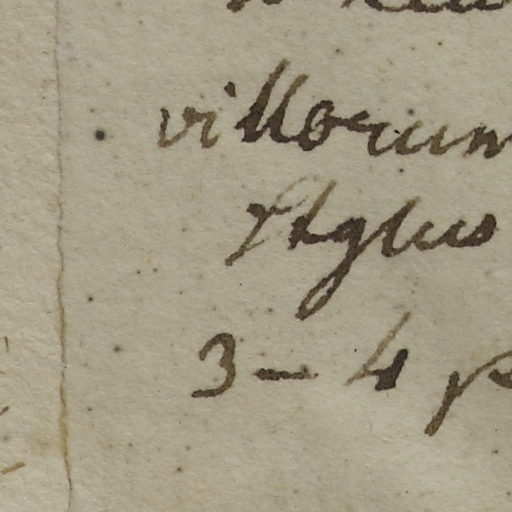 villorum
Stylus
3 - 4 p